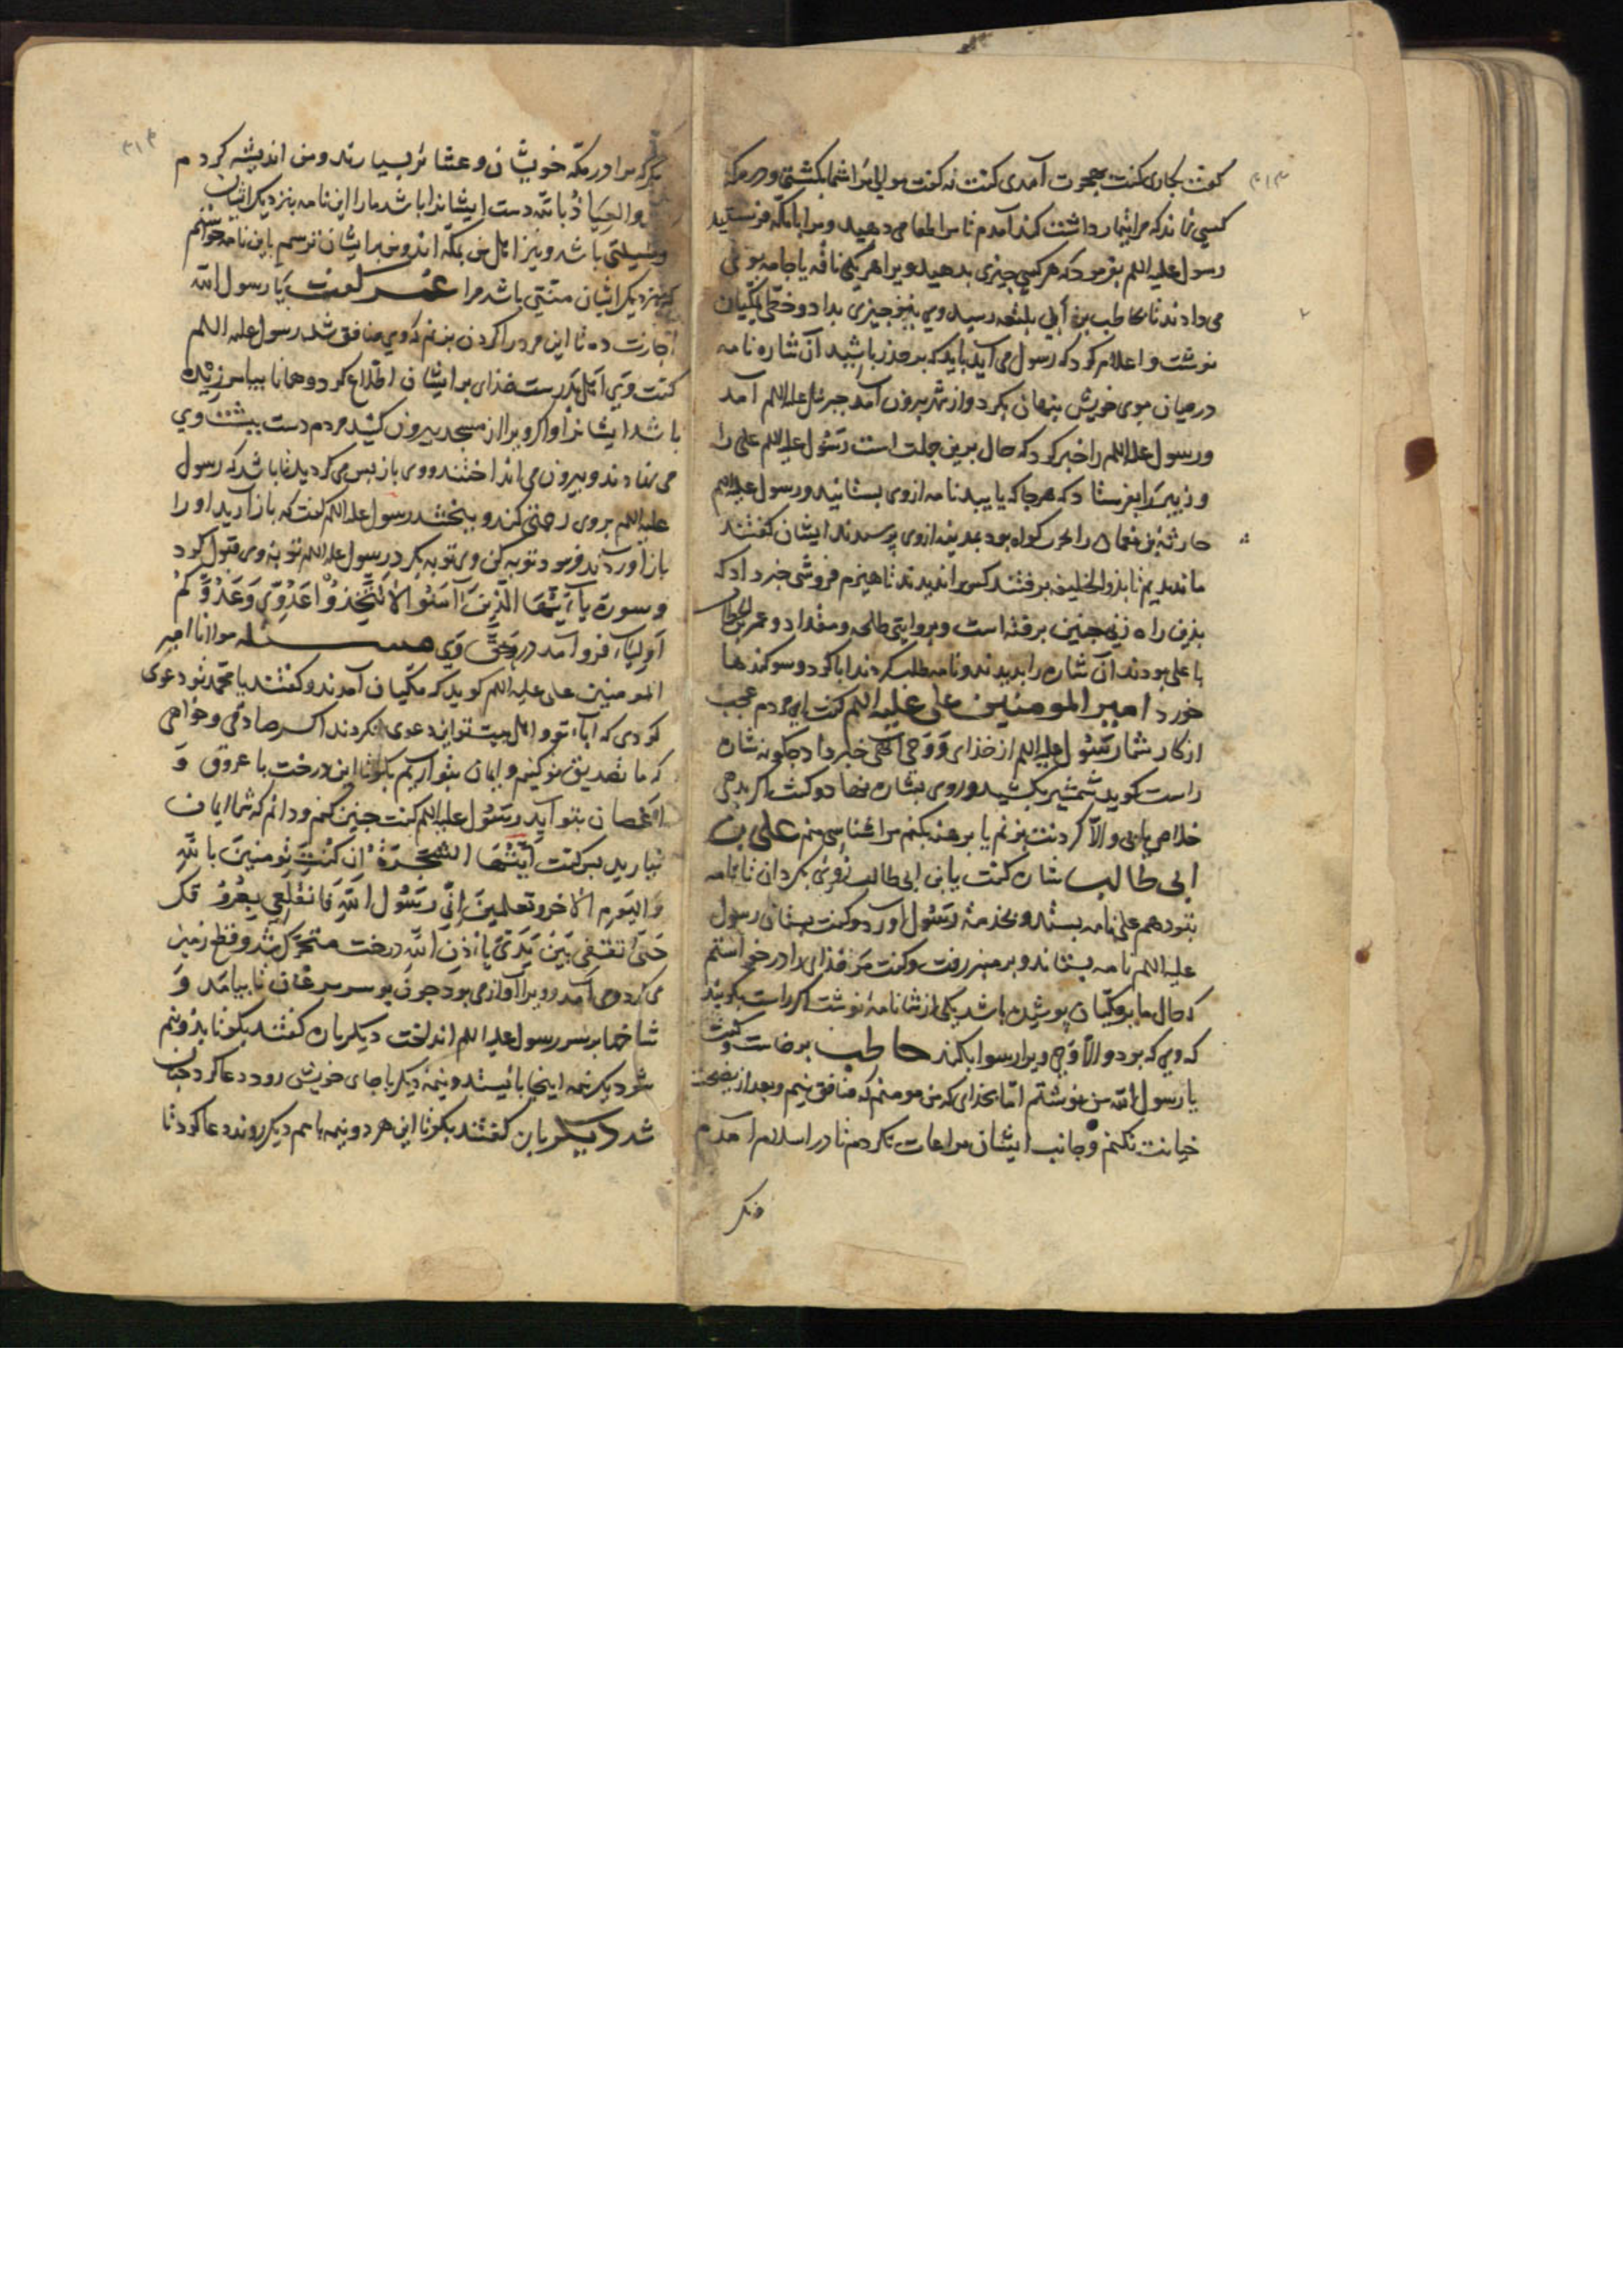 ۳۱۳
گفت بکاری گفت بهجرت آمدی گفت نه گفت موالی مرا شما بکشتی و در مکه
کسی نماند که مرا تیمار داشت کند آمدم تا مرا طعامی دهید و مرا بامکه فرستید
رسول علیه السلم بفرمود که هر کسی چیزی بدهید ویرا هر یکی نافه یا جامه بوی
می دادند تا بحاطب بن ابی بلتعه رسید وی نیز چیزی بداد و خطی بمکیان
نوشت و اعلام کرد که رسول می آید باید که بر حذر باشید آن شاره نامه
در میان موی خویش پنهان بکرد و از شهر بیرون آمد جبرئیل علیه السلم آمد
و رسول علیه السلم را خبر کرد که حال برین جملت است رسول علیه السلم علی را
و زبیر را بفرستاد که هرجا که یابید نامه ازوی بستانید و رسول علیه السلم
حارثه بن نعمان را بمدینه ازوی پرسیدند ایشان گفتند
ما ندیدیم تا بذوالحلیفه برفتند کس را ندیدند تا هیزم فروشی خبر داد که
بذین راه زنی چنین برفته است و بروایتی طلحه و مقداد و عمر بن الخطاب
با علی بودند آن شاره را بدیدند و نامه طلب کردند ابا کرد و سوکندها
خورد امیر المومنین علی علیه السلم گفت ای مردم عجب
از کار شما رسول علیه السلم از خذای و وحی الهی خبر داد چگونه شاره
راست کوید شمشیر بکشید و روی بشاره نهاد و گفت اگر بدهی
خلاص یابی و الا کردنت بزنم یا برهنه بکنم مرا شناسی منم علی بن
ابی طالب شاره گفت یابن ابی طالب روی بکردان تا نامه
بتو دهم علی نامه بستد و بخدمة رسول آورد و گفت بستان رسول
علیه السلم نامه بستاند و بر منبر رفت و گفت من خذای را در خواستم
که حال ما بر مکیان پوشیده باشد یکی از شما نامه نوشت اگر راست بکویند
که وی که بود و الا وحی ویرا رسوا بکند حاطب برخاست و گفت
یا رسول الله من نوشتم اما بخذای که من مومنم که منافق نیم و بعد از نصیحت
خیانت نکنم و جانب ایشان مراعات نکردم تا در اسلام آمدم
۳۱۴
مرا در مکه خویشان و عشائر بسیارند و من اندیشه کردم
والعیاذ بالله دست ایشانرا باشد ما را این نامه بنزدیک ایشان
وسیلتی باشد و نیز اهل من بمکه اند و من بر ایشان ترسم باین نامه خواستم
که بنزدیک ایشان منتی باشد مرا عمر گفت یا رسول الله
اجازت ده تا این مرد را کردن بزنم که وی منافق شد رسول علیه السلم
گفت وی اهل بدرست خذای بر ایشان اطلاع کرد و همانا بیامرزیده
باشد ایشانرا و اکر ویرا از مسجد بیرون کشید مردم دست بپشت وی
می نهادند و بیرون می انداختند و وی باز پس می کردید تا باشد که رسول
علیه السلم بروی رحمتی کند و ببخشد رسول علیه السلم گفت که باز آرید او را
باز آوردند فرمود توبه کن وی توبه بکرد رسول علیه السلم توبه وی قبول کرد
و سورة یا ایها الذین آمنوا لا تتخذوا عدوی و عدوکم
اولیاء فرو آمد در حق وی مسئله مولانا امیر
المومنین علی علیه السلم کوید که مکیان آمدند و گفتند یا محمد تو دعوی
کردی که اباء تو و اهل بیت تو این دعوی نکردند اگر صادقی و خواهی
که ما تصدیق تو کنیم و ایمان بتو آریم بکو تا این درخت با عروق و
اغصان بتو آید رسول علیه السلم گفت چنین کنم و دانم که شما ایمان
نیارید پس گفت ایتها الشجرة ان کنت تومنین بالله
و الیوم الآخر و تعلمین انی رسول الله فانقلعی بعروقک
حتی تقفی بین یدی باذن الله درخت متحرک شد و قطع زمین
می کرد و می آمد و ویرا آوازی بود چون پر سر مرغان تا بیامد و
شاخها بر سر رسول علیه السلم انداخت دیکر باره گفتند بکو تا بذو نیم
شود یک نیمه اینجا باایستد و نیمۀ دیکر باجای خویش رود دعا کرد چنان
شد دیکر باره گفتند بکو تا این هر دو نیمه باهم دیکر روند دعا کرد تا